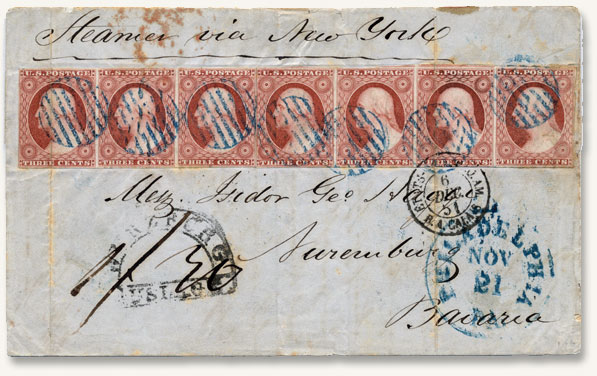 Steamer via New York
U.S. POSTAGE U.S. POSTAGE U.S. POSTAGE U.S. POSTAGE U.S. POSTAGE U.S. POSTAGE U.S. POSTAGE
THREE CENTS THREE CENTS THREE CENTS THREE CENTS THREE CENTS THREE CENTS THREE CENTS
Isidor Geo
6 DEC. 51
Nuremburg
PHILADELPHIA
NOV
21
Bavaria